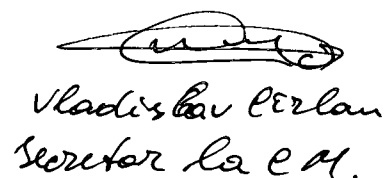 Vladislav Cirlan
Secretar la C M.